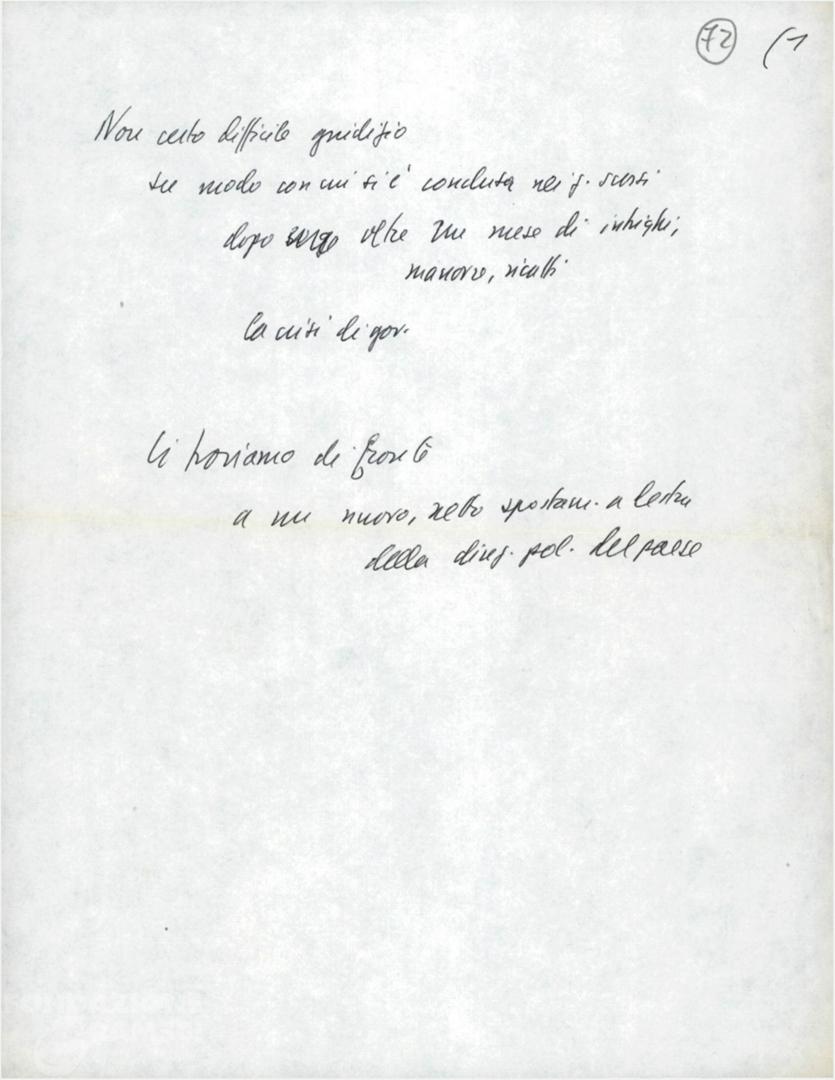 72 (1
Non certo difficile giudizio
su modo con cui si è conclusa nei g. scorsi
dopo oltre un mese di intrighi,
manovre, ricatti
la crisi di gov.
Ci troviamo di fronte
a un nuovo, netto spostam. a destra
della direz. pol. del paese